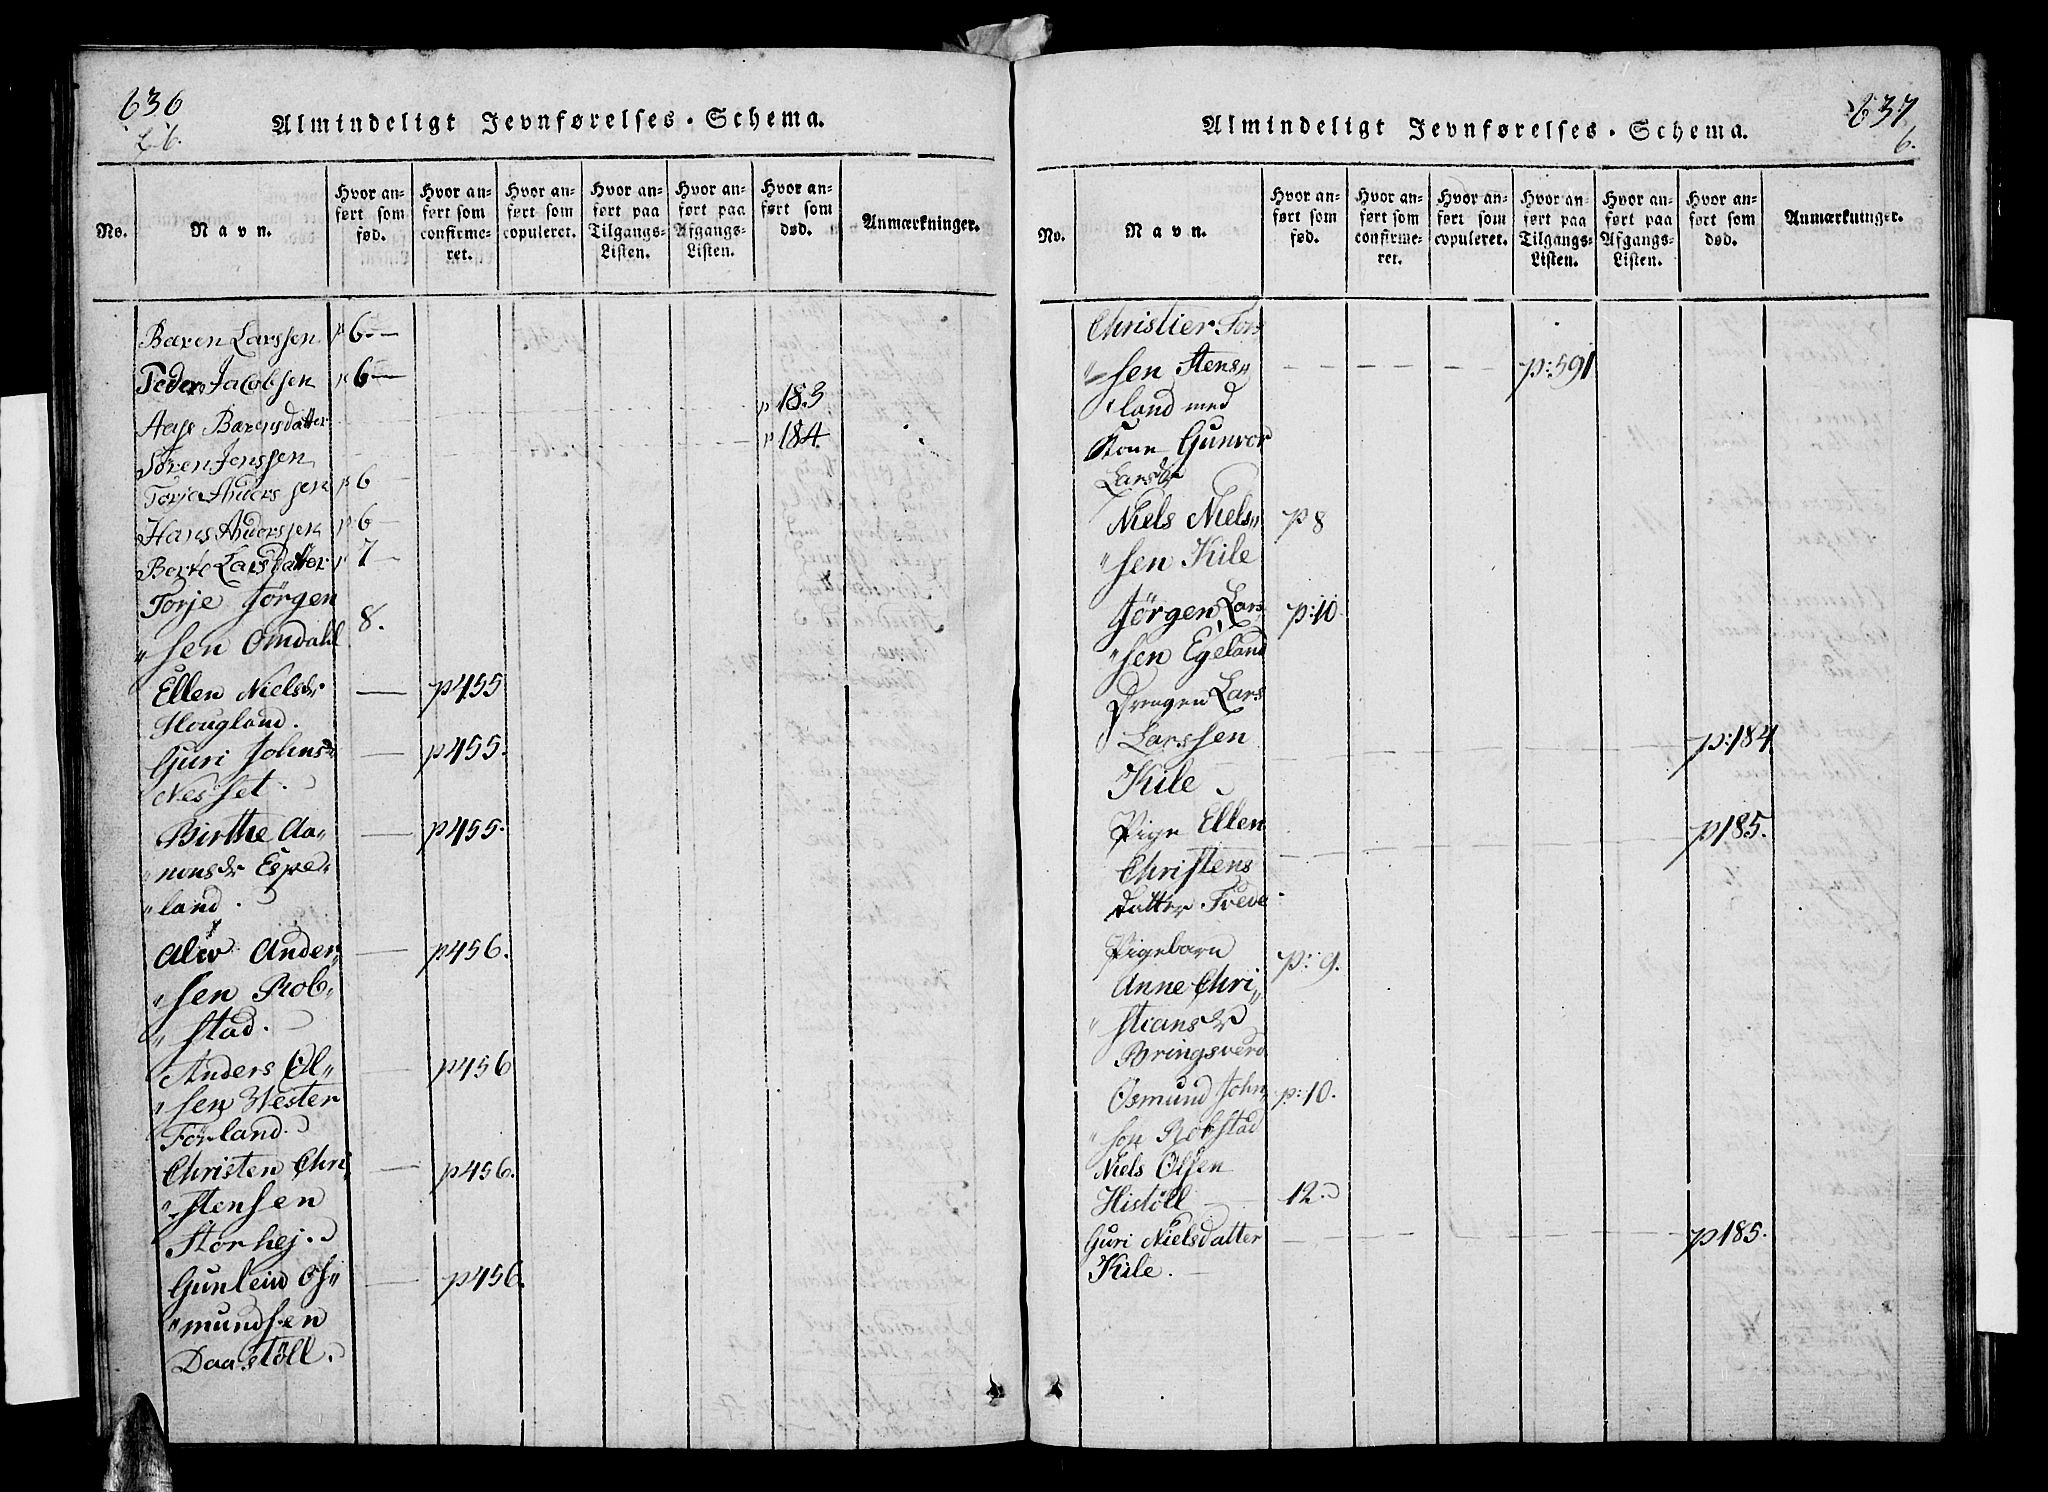 636
Almindeligt Jevnførelses-Schema.
No.
Navn.
Hvor an-
ført som
fød.
Hvor an-
ført som
confirme-
ret.
Hvor an-
ført som
copuleret.
Hvor an-
ført paa
Tilgangs-
Listen.
Hvor an-
ført paa
Afgangs-
Listen.
Hvor an-
ført som
død.
Anmærkninger.
Bæren Larssen p 6 —
Peder Jacobsen p 6 —
Aase Bærensdatter p 183
Søren Jenssen p 184
Torje Anderssen p 6
Hans Anderssen p 6 —
Berte Larsdatter p 7 —
Torje Jørgen
"sen Omdahl 8.
Ellen Nielsdr — p455
Hougland.
Guri Johns — p455.
Nesset.
Birthe Aa" — p455.
"nonsdr Espe"
"land.
Aliv Ander" — p456.
"sen Rob"
"stad.
Anders Ol" — p456
"sen Wester
Førland.
Christen Chri — p456.
"stensen
Storhej.
Gunleiv Os" — p456.
"mundsen
Daastøll.
637
6.
Almindeligt Jevnførelses-Schema.
No.
Navn.
Hvor an-
ført som
fød.
Hvor an-
ført som
confirme-
ret.
Hvor an-
ført som
copuleret.
Hvor an-
ført paa
Tilgangs-
Listen.
Hvor an-
ført paa
Afgangs-
Listen.
Hvor an-
ført som
død.
Anmærkninger.
Christier Tors
"sen Stens" p:591
"land med
Kone Gunvor
Larsdr
Niels Niels" p8
"sen Kile
Jørgen Lars p:10
"sen Egeland
Drengen Lars
Larssen p:184
Kile
Pige Ellen p185.
Christens
datter Trede
Pigebarn p:9.
Anne Chri"
"stiansdr
Bringsverd
Osmund John" p:10.
"sen Robstad
Niels Olsen
Histøll 12.
Guri Nielsdatter p185.
Kile.